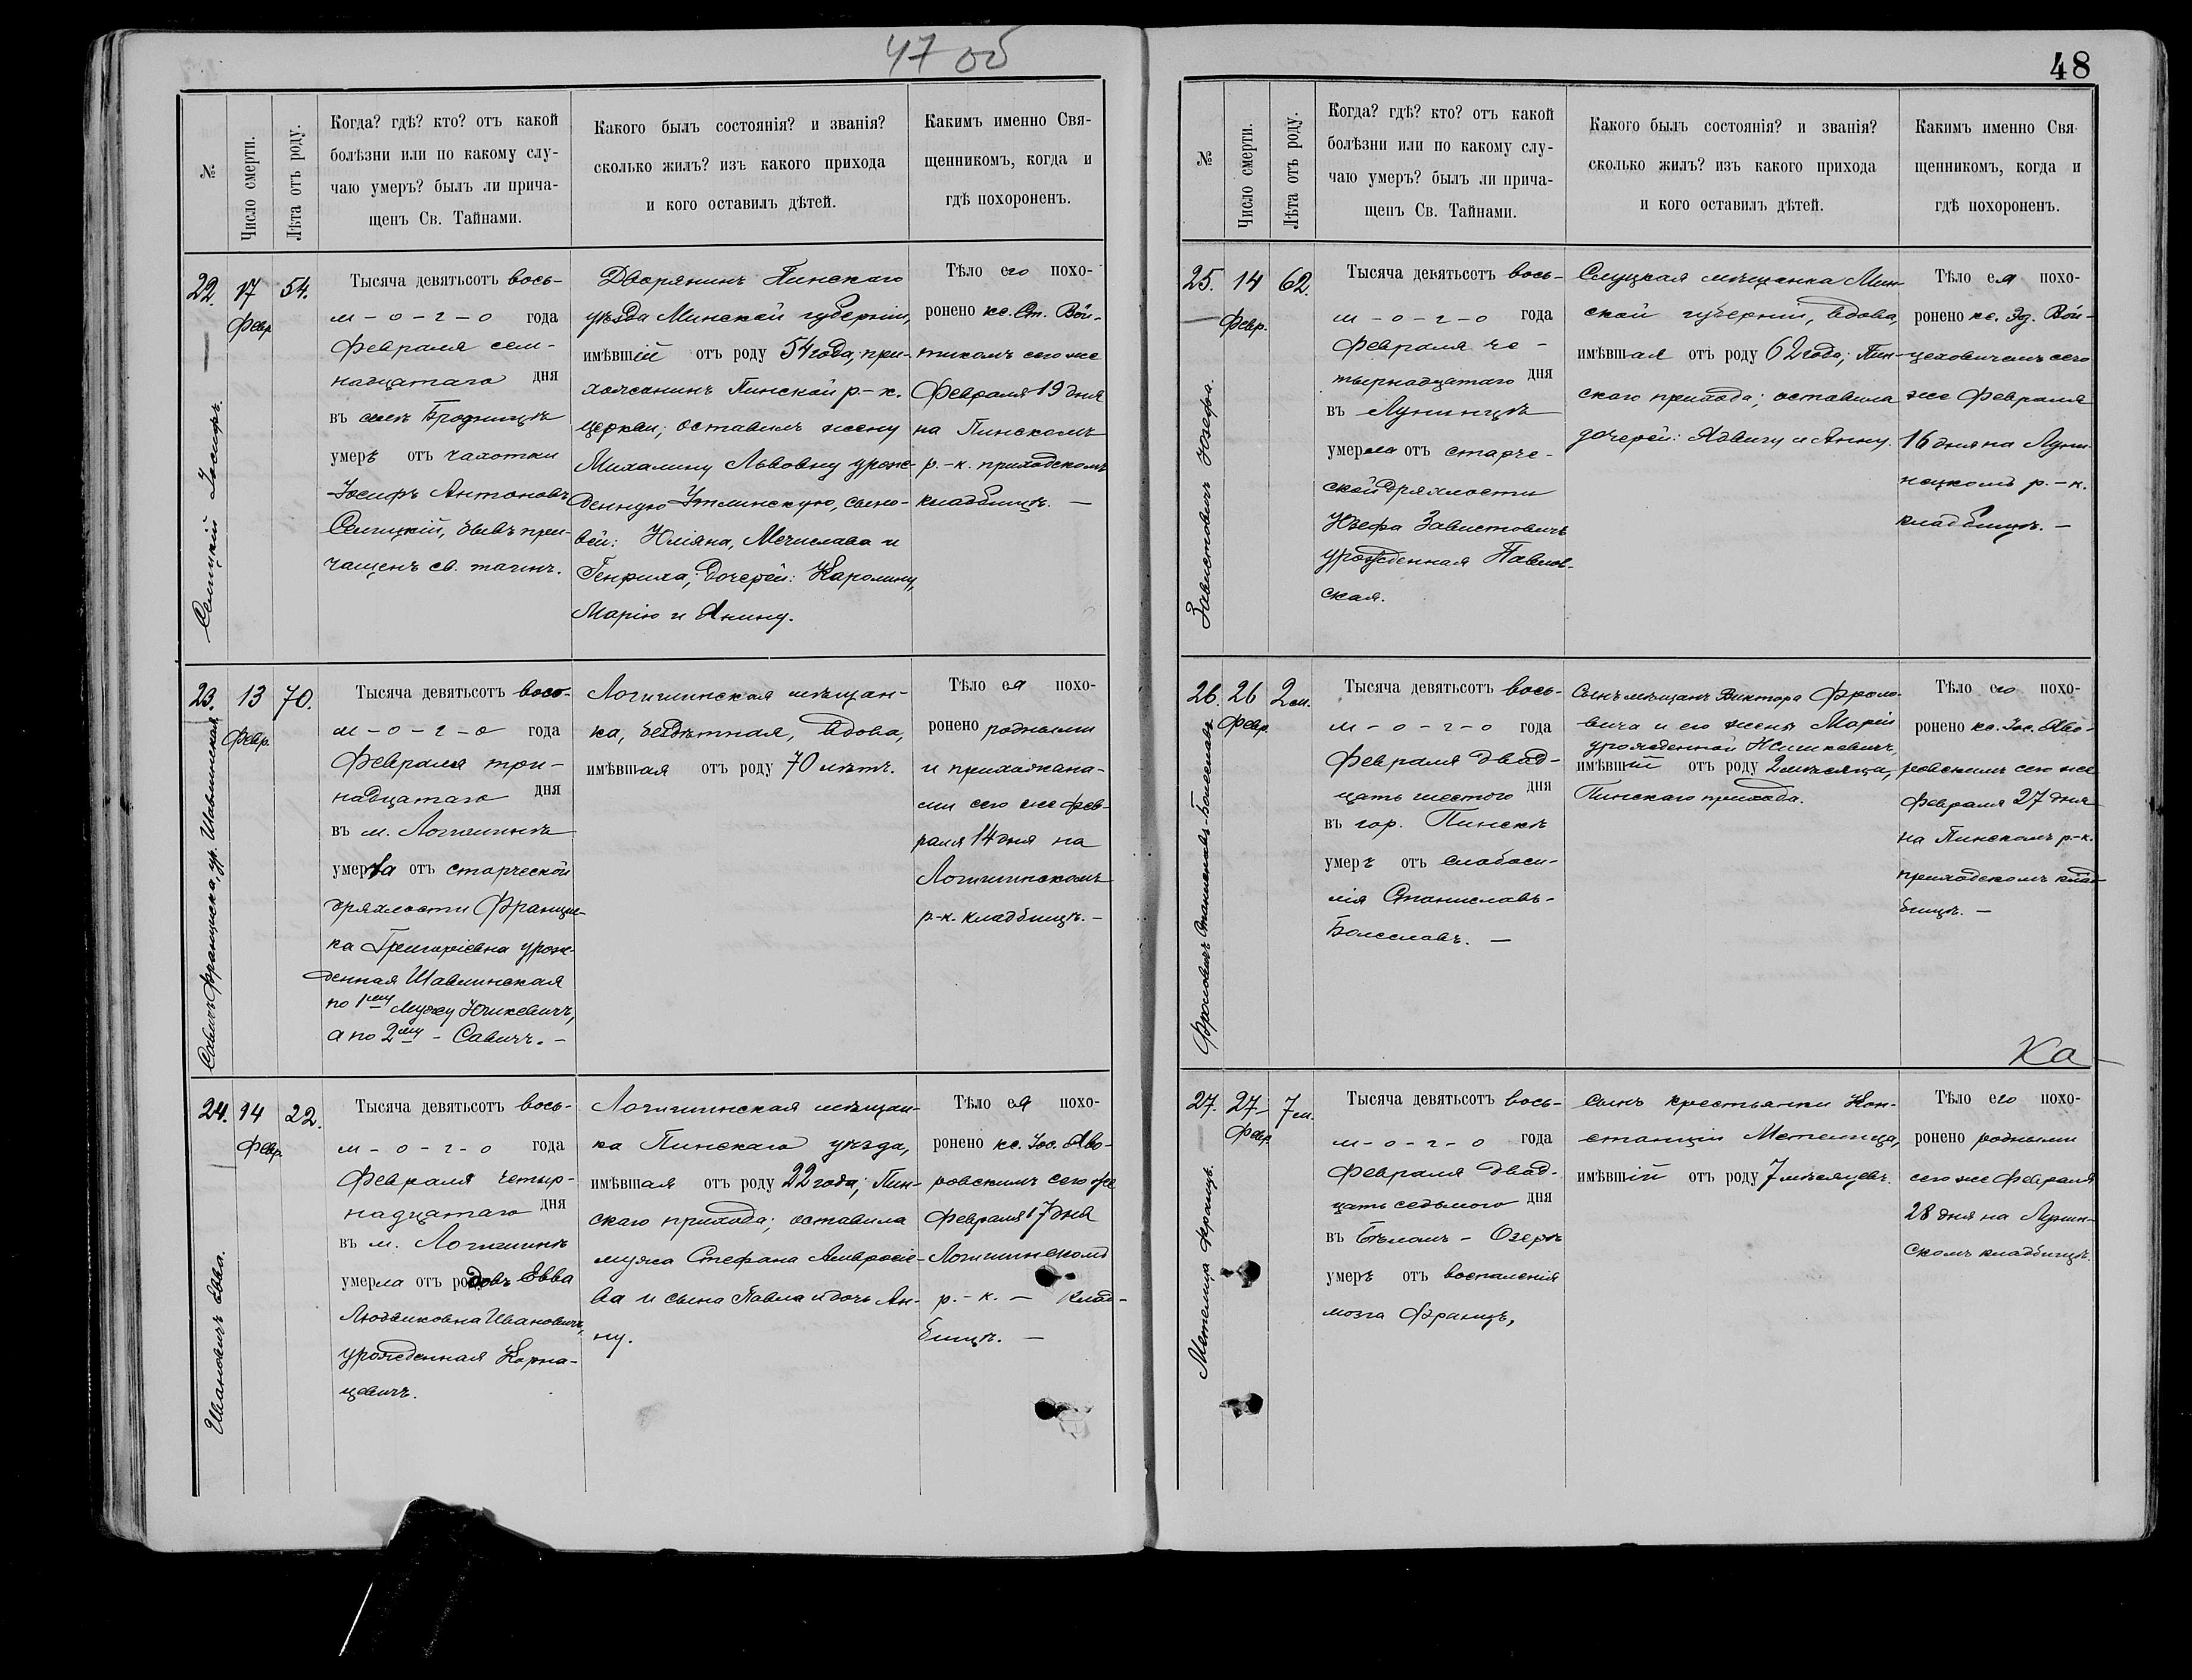 47 об
№
Число смерти.
Лѣта отъ роду.
Когда? гдѣ? кто? отъ какой
болѣзни или по какому слу-
чаю умеръ? былъ ли прича-
щенъ Св. Тайнами.
Какого былъ состоянія? и званія?
сколько жилъ? изъ какого прихода
и кого оставилъ дѣтей.
Какимъ именно Свя-
щенникомъ, когда и
гдѣ похороненъ.
22.
Селицкій Іосифъ.
17
Февр.
54.
Тысяча девятьсотъ вось-
м-о-г-о года
Февраля сем-
надцатаго дня
въ селѣ Бродницѣ
умеръ отъ чахотки
Іосифъ Антоновъ
Селицкій, бывъ при-
чащенъ св. таинъ.
Дворянинъ Пинскаго
уѣзда Минской губерніи,
имѣвшій отъ роду 54 года, при-
хожанинъ Пинской р-к.
церкви; оставилъ жену
Михалину Львовну урож-
денную, сыно-
вей: Юліяна, Мечислава и
Генриха; дочерей: Каролину,
Марію и Янину.
Тѣло его похо-
ронено кс. Ст. Вой-
тикомъ сего же
Февраля 19 дня
на Пинскомъ
р.-к. приходскомъ
кладбищѣ. —
23.
Савичъ Франциска, ур. Шавлинская
13
Февр.
70.
Тысяча девятьсотъ вось-
м-о-г-о года
Февраля три-
надцатаго дня
въ м. Логишинѣ
умерла отъ старческой
дряхлости Францис-
ка Григоріевна урож-
денная Шавлинская
по 1ому мужу Юшкевичъ,
а по 2ому - Савичъ. -
Логишинская мѣщан-
ка, бездѣтная, вдова,
имѣвшая отъ роду 70 лѣтъ.
Тѣло ея похо-
ронено родными
и прихожана-
ми сего же Фев-
раля 14 дня на
Логишинскомъ
р-к. кладбищѣ. -
24.
Ивановичъ Евва.
14
Февр.
22.
Тысяча девятьсотъ вось-
м-о-г-о года
Февраля четыр-
надцатаго дня
въ м. Логишинѣ
умерла отъ родовъ Евва
Людвиковна Ивановичъ,
урожденная Карна-
цевичъ.
Логишинская мѣщан-
ка Пинскаго уѣзда,
имѣвшая отъ роду 22 года; Пин-
скаго прихода; оставила
мужа Стефана Амвросіе-
ва и сына Павла и дочь Ан-
ну.
Тѣло ея похо-
ронено кс. Іос. Яво-
ровскимъ сего же
Февраля 17 дня
Логишинскомъ
р.-к. — клад-
бищѣ. —
48
№
Число смерти.
Лѣта отъ роду.
Когда? гдѣ? кто? отъ какой
болѣзни или по какому слу-
чаю умеръ? былъ ли прича-
щенъ Св. Тайнами.
Какого былъ состоянія? и званія?
сколько жилъ? изъ какого прихода
и кого оставилъ дѣтей.
Какимъ именно Свя-
щенникомъ, когда и
гдѣ похороненъ.
25.
Завистовичъ Юзефа.
14
Февр.
62.
Тысяча девятьсотъ вось-
м-о-г-о года
Февраля че-
тырнадцатаго дня
въ Лунинцѣ
умерла отъ старче-
ской дряхлости
Юзефа Завистовичъ
урожденная Павлов-
ская.
Слуцкая мѣщанка Мин-
ской губерніи, вдова,
имѣвшая отъ роду 62 года; Пин-
скаго прихода; оставила
дочерей: Ядвигу и Анну.
Тѣло ея похо-
ронено кс. Эд. Вой-
цеховичемъ сего
же Февраля
16 дня на Луни-
нецкомъ р.-к.
кладбищѣ. —
26.
Фроловичъ Станиславъ-Болеславъ
26
Февр.
2 м.
Тысяча девятьсотъ вось-
м-о-г-о года
Февраля двад-
цать шестого дня
въ гор. Пинскѣ
умеръ отъ слабоси-
лія Станиславъ-
Болеславъ. —
Сынъ мѣщанъ Виктора Фроло-
вича и его жены Маріи
урожденной
имѣвшій отъ роду 2 мѣсяца,
Пинскаго прихода.
Тѣло его похо-
ронено кс. Іос. Яво-
ровскимъ сего же
Февраля 27 дня
на Пинскомъ р-к.
приходскомъ клад-
бищѣ. —
Ка-
27.
Метелица Францъ.
27-
Февр.
7 м.
Тысяча девятьсотъ вось-
м-о-г-о года
Февраля двад-
цать седьмого дня
въ Бѣломъ - Озерѣ
умеръ отъ воспаленія
мозга Францъ,
Сынъ крестьянки Кон-
станціи Метелица,
имѣвшій отъ роду 7 мѣсяцевъ.
Тѣло его похо-
ронено родными
сего же Февраля
28 дня на Лунин-
скомъ кладбищѣ.